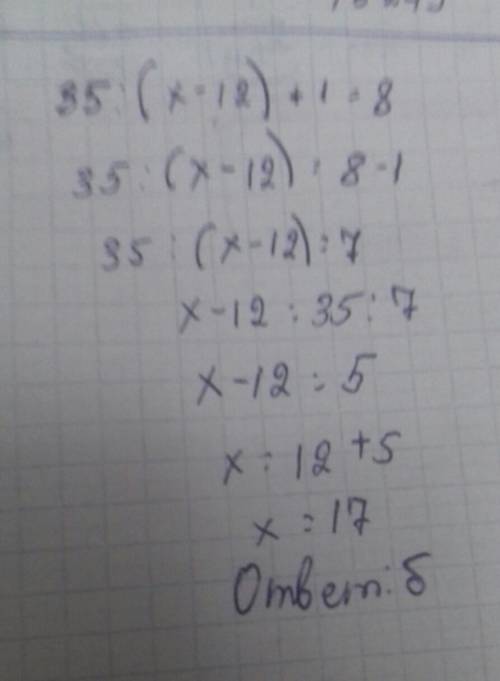 35 : (x - 12) + 1 = 8
35 : (x - 12) = 8 - 1
35 : (x - 12) = 7
x - 12 = 35 : 7
x - 12 = 5
x = 12 + 5
x = 17
Ответ: б